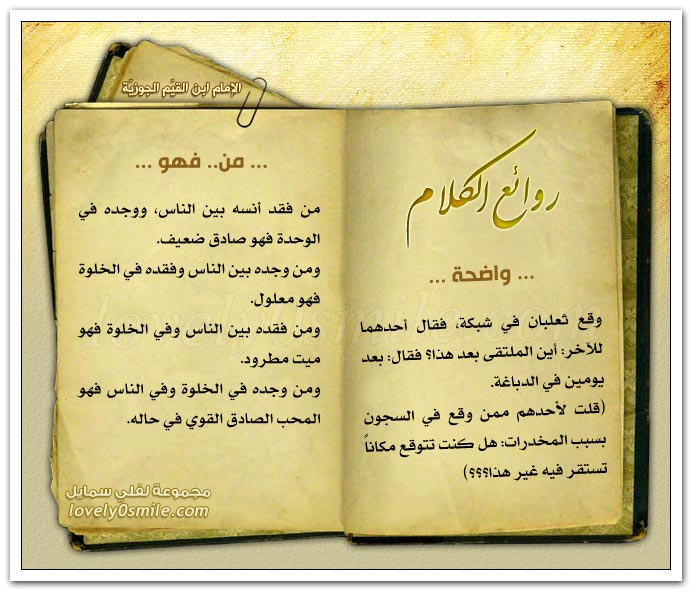 روائع الكلام
... واضحة ...
وقع ثعلبان في شبكة، فقال أحدهما
للآخر: أين الملتقى بعد هذا؟ فقال: بعد
يومين في الدباغة.
(قلت لأحدهم ممن وقع في السجون
بسبب المخدرات: هل كنت تتوقع مكاناً
تستقر فيه غير هذا؟؟؟)
الإمام ابن القيّم الجوزيّة
... من.. فهو ...
من فقد أنسه بين الناس، ووجده في
الوحدة فهو صادق ضعيف.
ومن وجده بين الناس وفقده في الخلوة
فهو معلول.
ومن فقده بين الناس وفي الخلوة فهو
ميت مطرود.
ومن وجده في الخلوة وفي الناس فهو
المحب الصادق القوي في حاله.
lovely0smile.com
مجموعة لفلي سمايل
lovely0smile.com